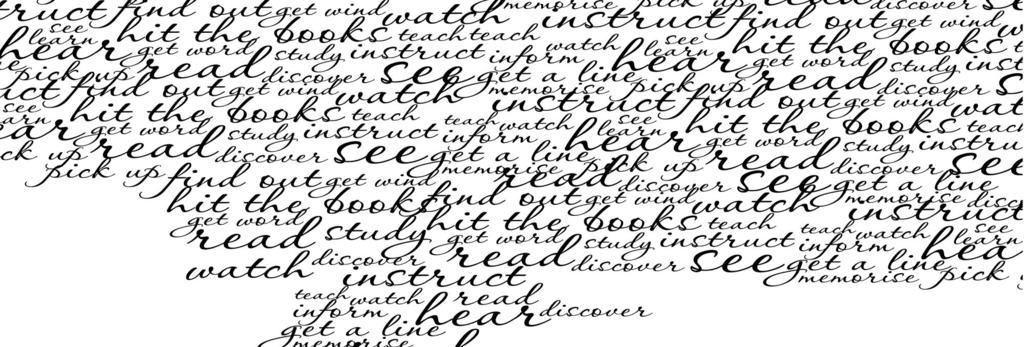 truct find out get wind watch memorise instruct find out get wind discover
see learn hit the books teach teach see learn hit the books
hear get word study instruct inform watch hear get word study inst
pick up read discover see get a line pick up read discover
uct find out get wind watch memorise instruct find out get wind wat
see arn hit the books teach teach watch see learn hit the books teac
ar get word study instruct inform hear get word study instru
ck up read discover see get a line pick up read discover see
pick up find out get wind memorise read discover see get a line
hit the books find out get wind watch memorise disc
get word hit the books teach teach watch instruct see
read study get word study instruct inform hea learn
watch discover read discover see get a line
instruct memorise pick
teach watch read
inform hear discover
get a line
memorise